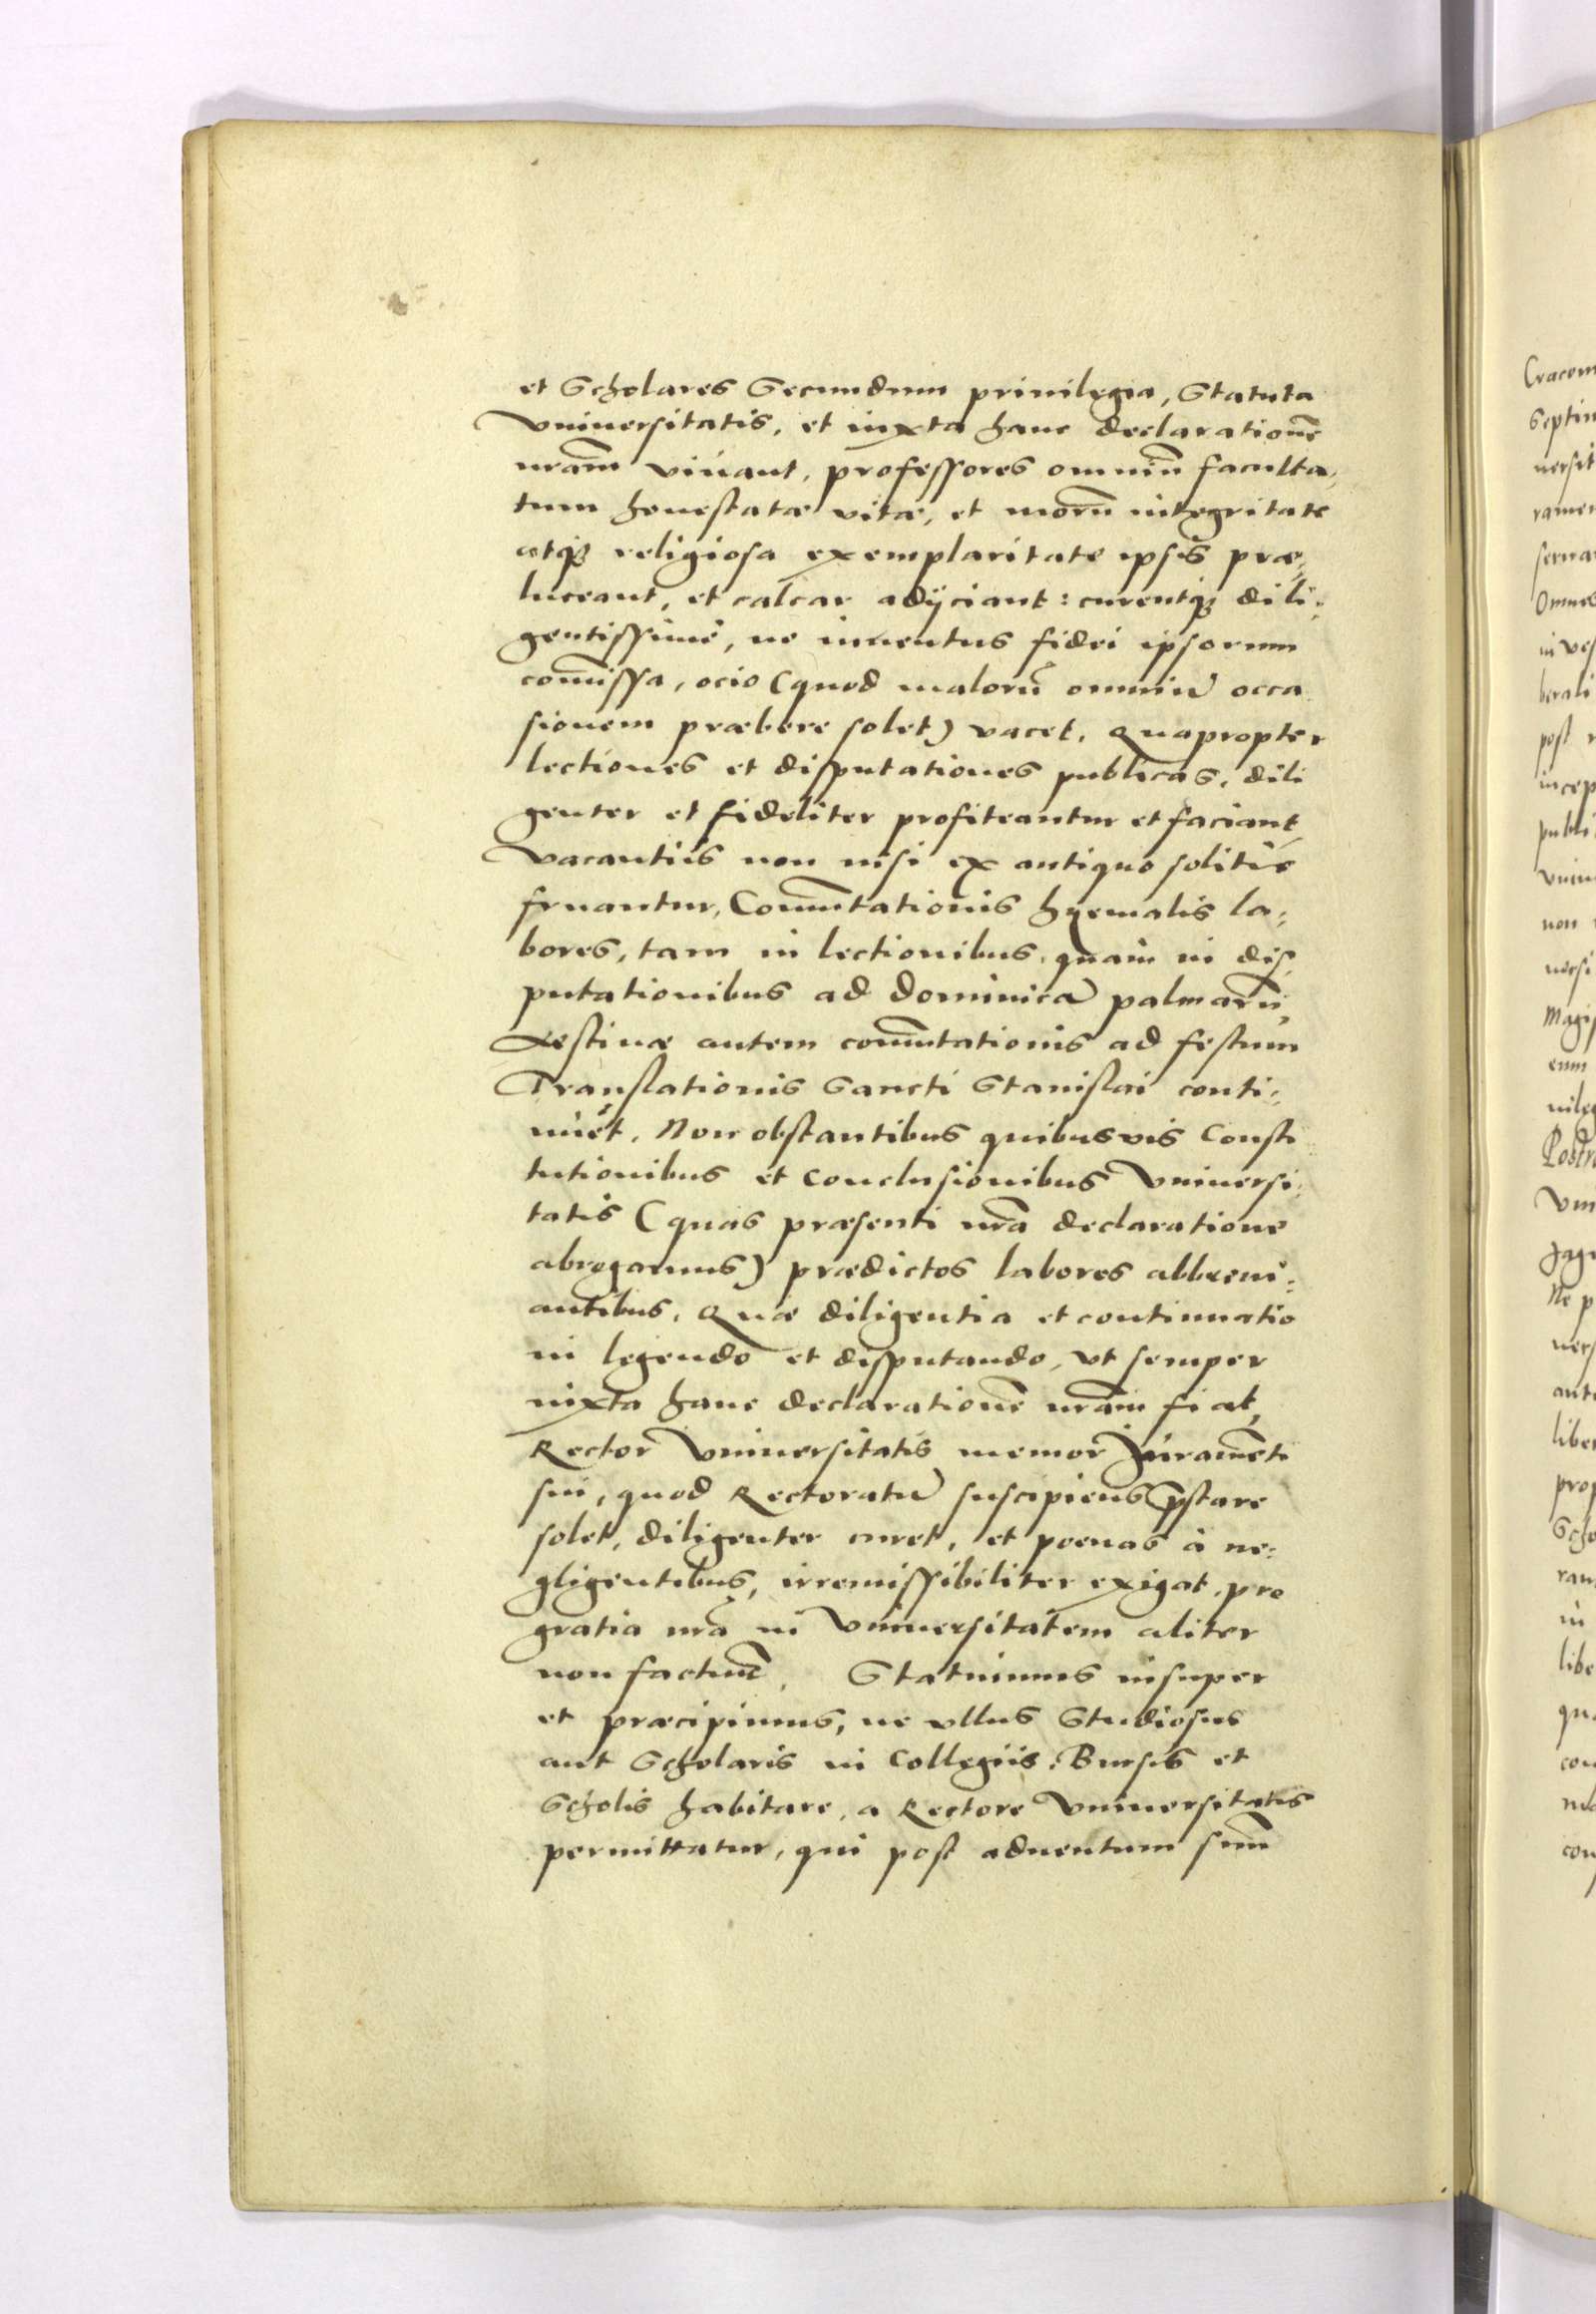 et Scholares Secundum priuilegia, Statuta
Vniuersitatis, et iuxta hanc declarationẽ
nrãm viuant, professores omniũ faculta,
tum honestatæ vitæ, et morũ integritate
atqꝫ religiosa exemplaritate ipsis præ,
luceant, et calcar adijciant: curentqꝫ dili,
gentissime, ne iuuentus fidei ipsorum
com̃issa, ocio (quod malorũ omniũ occa
sionem præbere solet) vacet. Quapropter
lectiones et disputationes publicas, dili
genter et fideliter profiteantur et faciant,
Vacantiis non nisi ex antiquo solitis
fruantur, Com̃utationis hyemalis la,
bores, tam in lectionibus, quam in dis,
putationibus ad dominicã palmarũ,
Aestiuæ autem com̃utationis ad festum
Translationis Sancti Stanislai conti,
nuẽt, Non obstantibus quibusvis Consti
tutionibus et Conclusionibus Vniuersi,
tatis (quas præsenti nrã declaratione
abrogamus) prædictos labores abbreui,
antibus. Quæ diligentia et continuatio
in legendo et disputando, vt semper
iuxta hanc declarationẽ nrãm fiat,
Rector Vniuersitatis memor Juramẽti
sui, quod Rectoratũ suscipiens p̃stare
solet, diligenter curet, et poenas à ne,
gligentibus, irremissibiliter exigat, pro
gratia nrã in Vniuersitatem aliter
non facturꝰ. Statuimus insuper
et præcipimus, ne vllus Studiosus
aut Scholaris in Collegiis, Bursis et
Scholis habitare, a Rectore Vniuersitatis
permittatur, qui post aduentum suũ